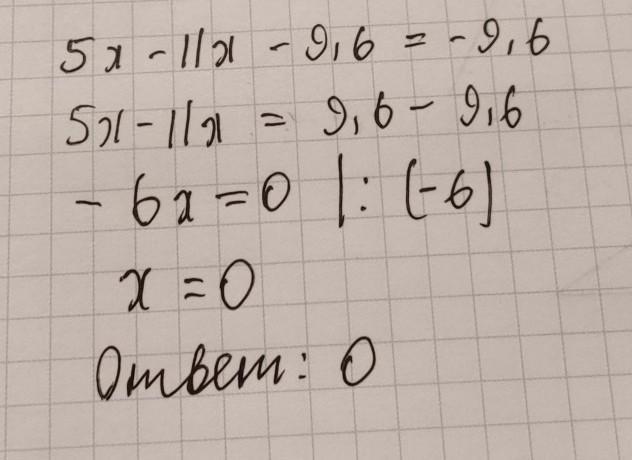 5x - 11x - 9,6 = -9,6
5x - 11x = 9,6 - 9,6
- 6x = 0 |: (-6)
x = 0
Ответ: 0